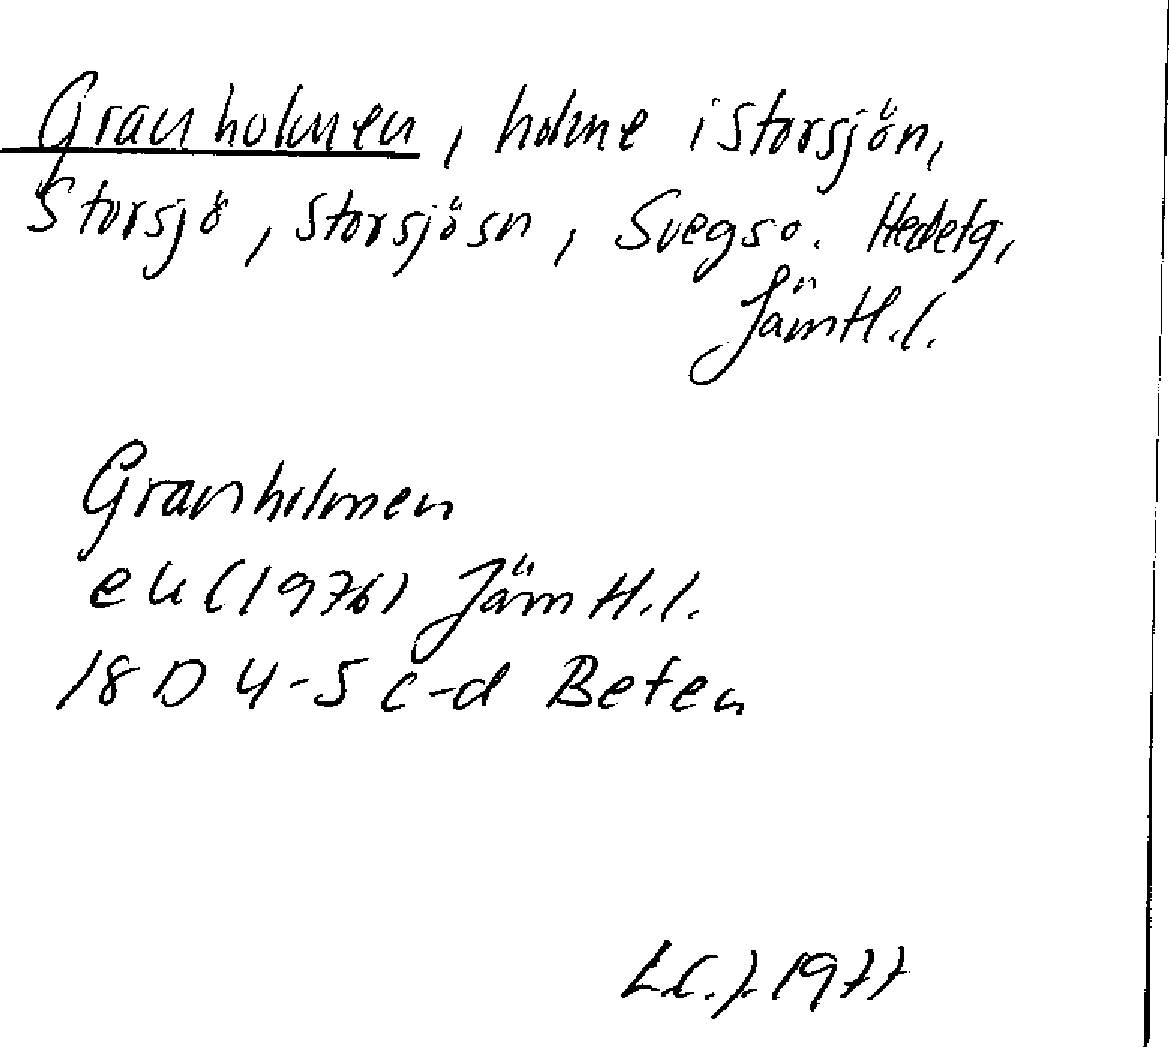 Granholmen, holme i Storsjön,
Storsjö, Storsjösn, Svegs so. Hedefg,
Jämtl.l.
Granholmen
ek (1976) Jämtl.l.
18 D 4-5 c-d Beten
L.C.J. 1977